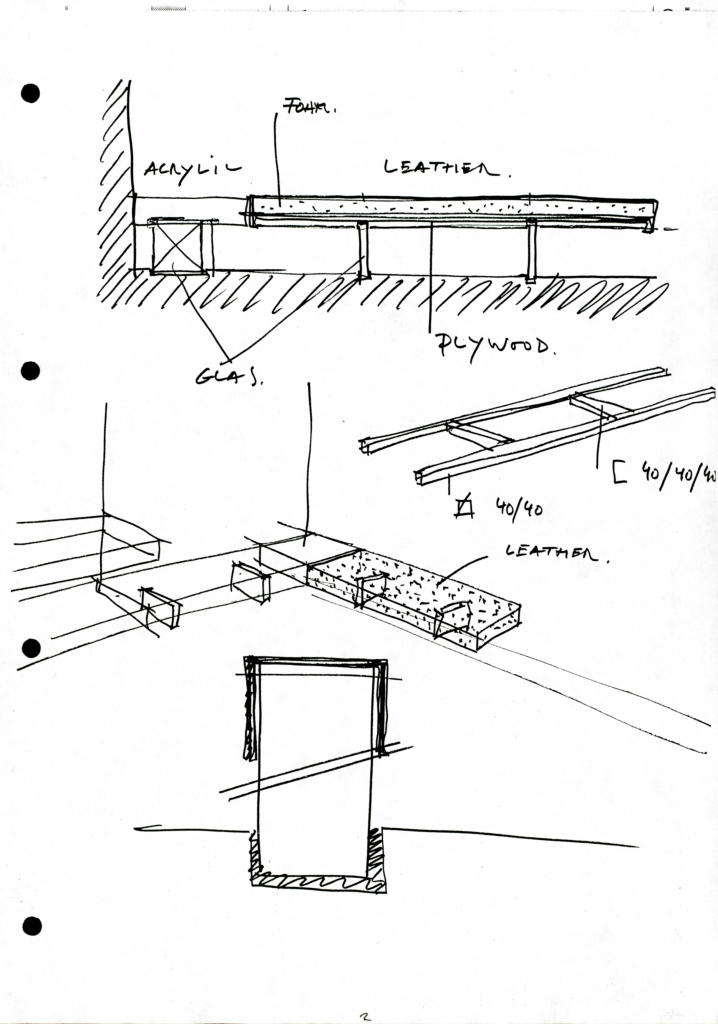 FOAM.
ACRYLIC
LEATHER.
PLYWOOD.
GLAS.
40/40/40
40/40
LEATHER.
2